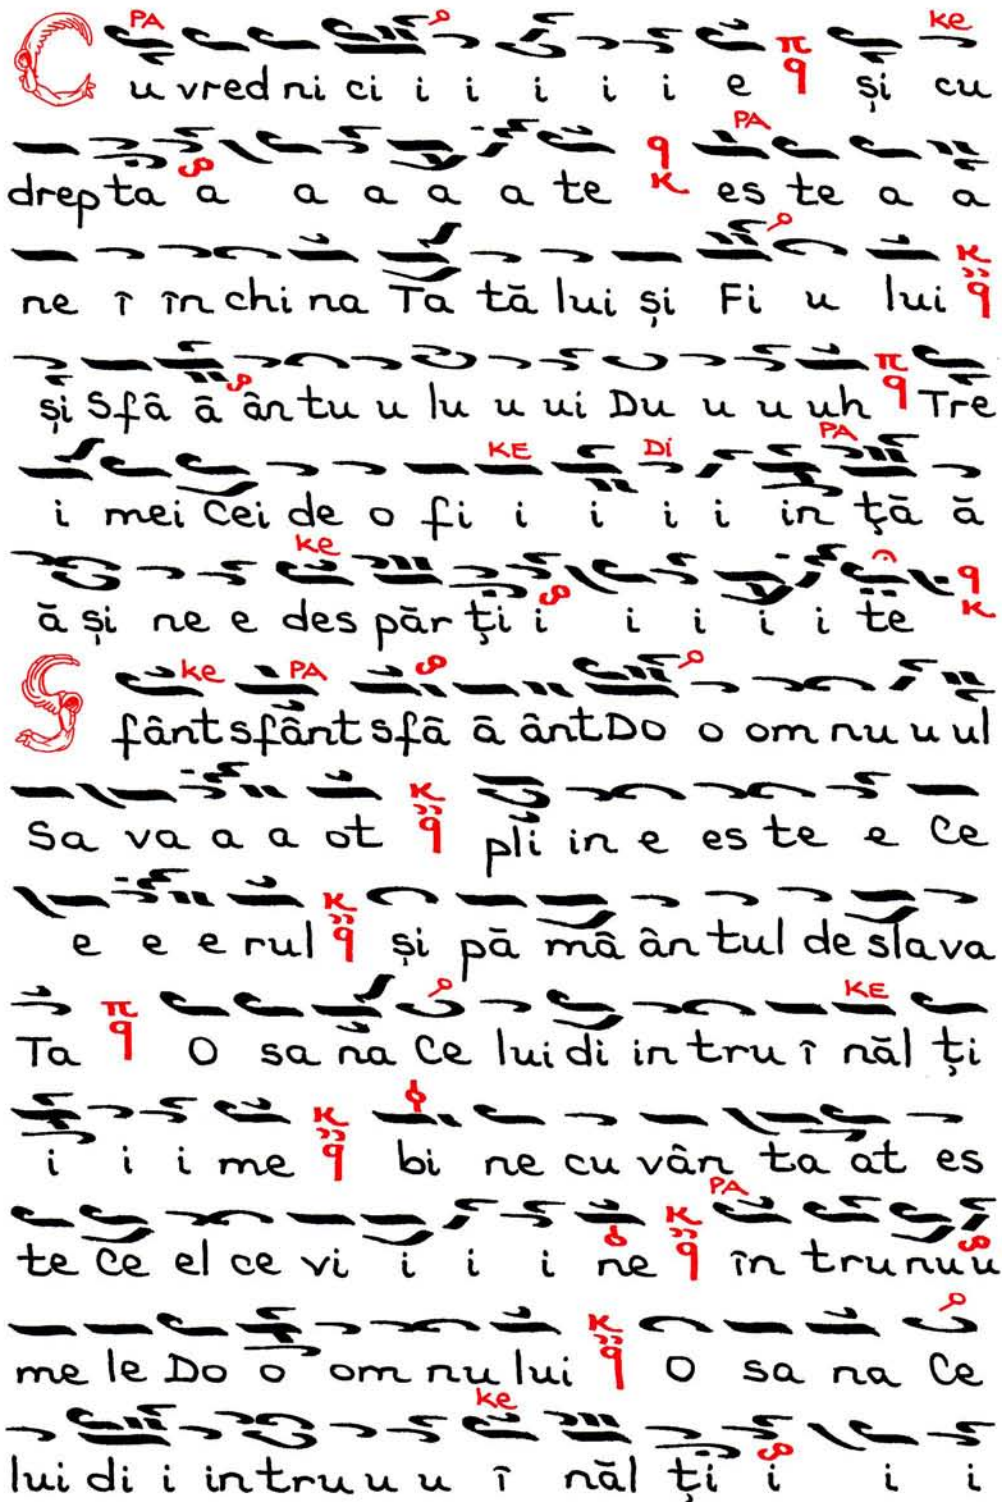 PA ke
Cu vred ni ci i i i i i i e π q și cu
PA
drep ta a a a a a te q κ es te a a
ne î în chi na Ta tă lui și Fi u lui κ q
și Sfâ â ân tu u lu u ui Du u u uh π q Tre
KE Di PA
i mei Cei de o fi i i i i in ță ă
ke
ă și ne e des păr ți i i i i i te q κ
ke PA
Sfânt sfânt sfâ â ânt Do o om nu u ul
Sa va a a ot κ q pli in e es te e Ce
e e e rul κ q și pă mâ ân tul de slava
KE
Ta π q O sa na Ce lui di in tru î năl ți
i i i me κ q bi ne cu vân ta at es
PA
te Ce el ce vi i i i ne κ q în tru nu u
me le Do o om nu lui κ q O sa na Ce
ke
lui di i in tru u u î năl ți i i i